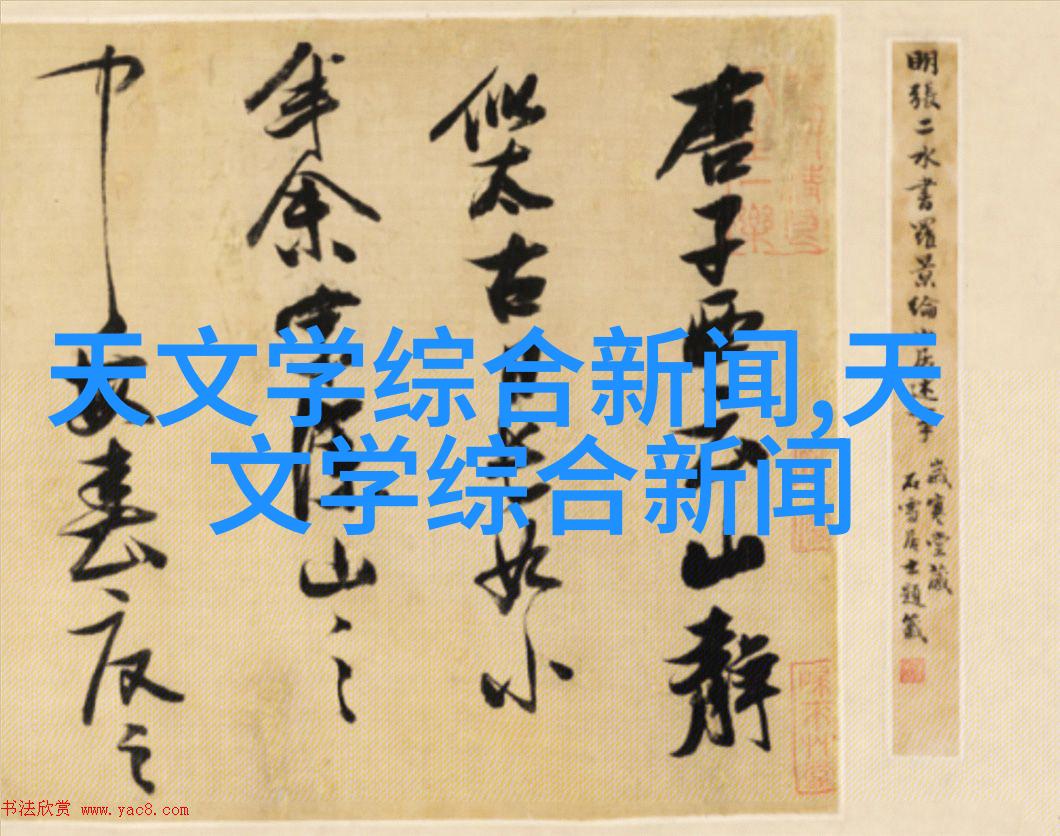 唐子西云山静
似太古日长如小
年余家深山之
中每春夏之
明张二水书罗景纶山居述事
岁寒堂藏
石雪居士题签
天文学综合新闻,天
文学综合新闻
书法欣赏 www.yac8.com